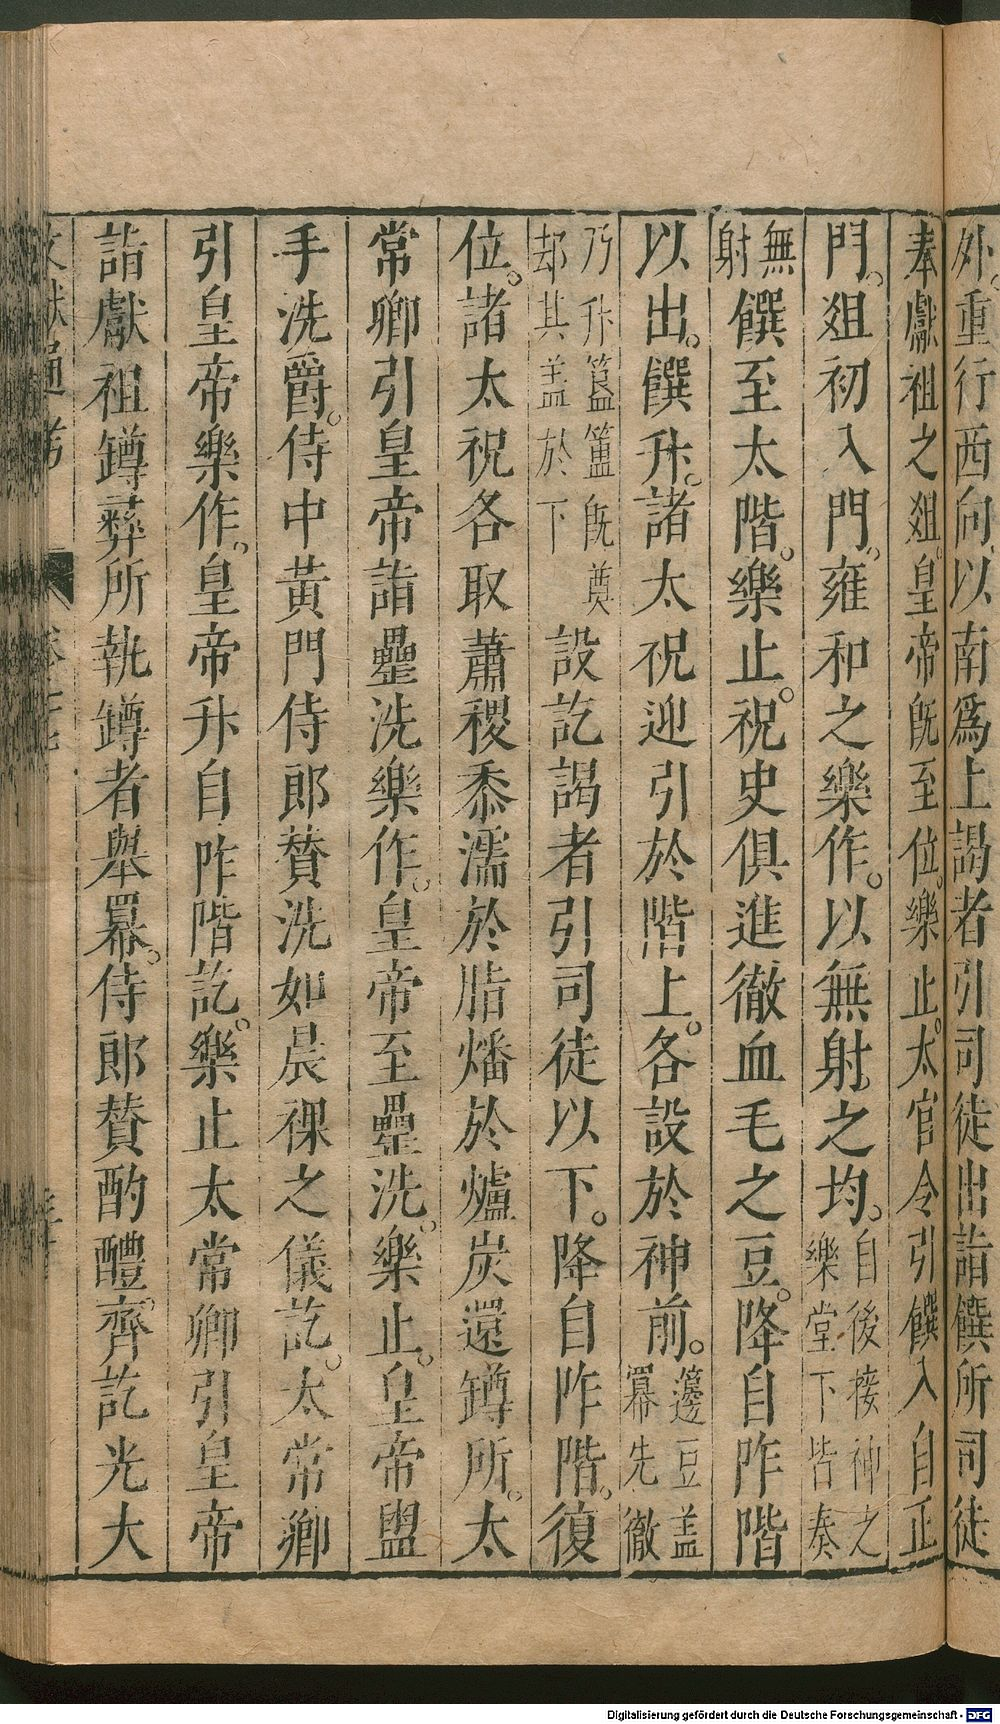 外。重行西向。以南爲上謁者引司徒出詣饌所司徒
奉獻祖之俎。皇帝既至位。樂止。太官令引饌入自正
門。俎初入門。雍和之樂作。以無射之均。自後接神之樂堂下皆奏
無射饌至太階。樂止。祝史俱進徹血毛之豆。降自阼階
以出。饌升。諸太祝迎引於階上。各設於神前。籩豆蓋冪先徹
乃升簋簠既奠却其盖於下設訖謁者引司徒以下。降自阼階。復
位。諸太祝各取蕭稷黍濡於脂燔於爐炭還罇所。太
常卿引皇帝詣罍洗樂作。皇帝至罍洗。樂止。皇帝盥
手洗爵。侍中黃門侍郎贊洗如晨祼之儀訖。太常卿
引皇帝樂作。皇帝升自阼階訖。樂止太常卿引皇帝
詣獻祖罇彝所執罇者舉冪。侍郎贊酌醴。齊訖光大
文獻通考
Digitalisierung gefördert durch die Deutsche Forschungsgemeinschaft - DFG